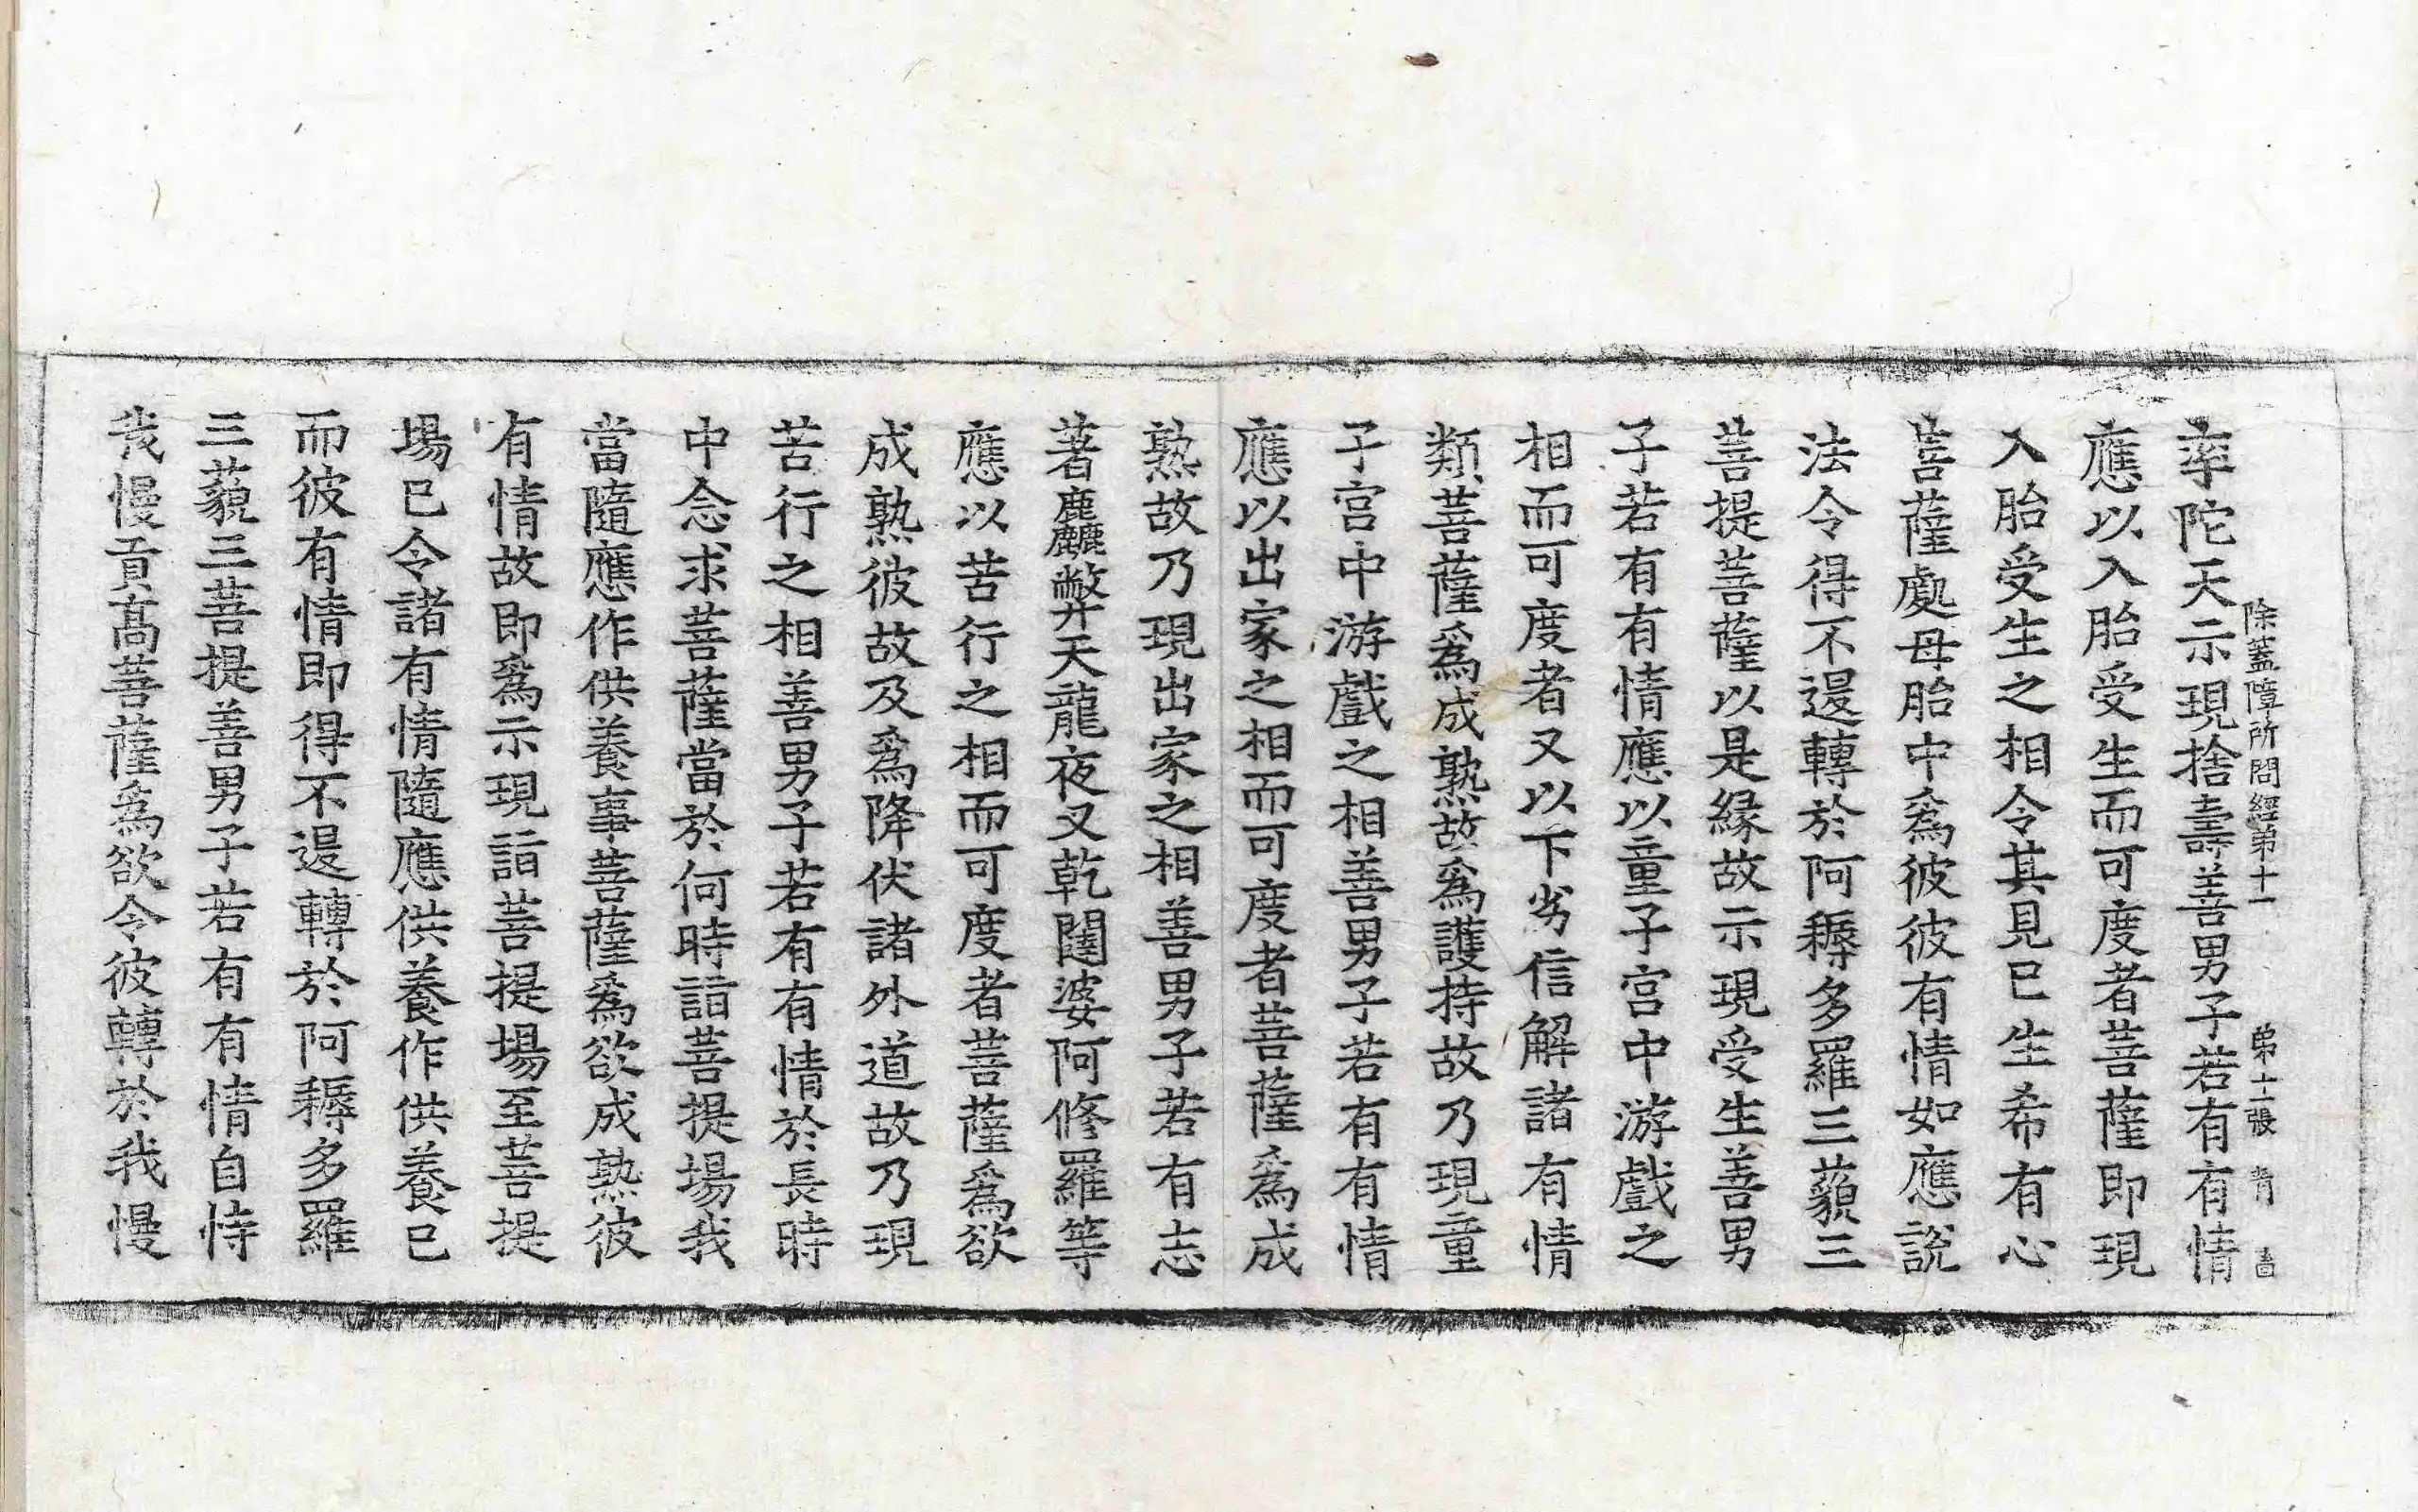 除蓋障所問經第十一　第十二張　青
率陀天示現捨壽善男子若有有情
應以入胎受生而可度者菩薩即現
入胎受生之相令其見已生希有心
菩薩處母胎中爲彼彼有情如應說
法令得不退轉於阿耨多羅三藐三
菩提菩薩以是緣故示現受生善男
子若有有情應以童子宮中游戲之
相而可度者又以下劣信解諸有情
類菩薩爲成熟故爲護持故乃現童
子宮中游戲之相善男子若有有情
應以出家之相而可度者菩薩爲成
熟故乃現出家之相善男子若有志
著麤弊天龍夜叉乾闥婆阿修羅等
應以苦行之相而可度者菩薩爲欲
成熟彼故及爲降伏諸外道故乃現
苦行之相善男子若有有情於長時
中念求菩薩當於何時詣菩提場我
當隨應作供養事菩薩爲欲成熟彼
有情故即爲示現詣菩提場至菩提
場已令諸有情隨應供養作供養已
而彼有情即得不退轉於阿耨多羅
三藐三菩提善男子若有有情自恃
我慢貢高菩薩爲欲令彼轉於我慢